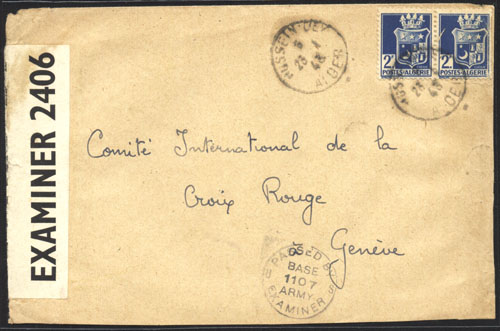 HUSSEIN-DEY
ALGER
2F
2F
POSTES-ALGERIE
POSTES-ALGERIE
EXAMINER 2406
Comité International de la
Croix Rouge
Genève
PASSED BY
BASE
1107
ARMY
EXAMINER